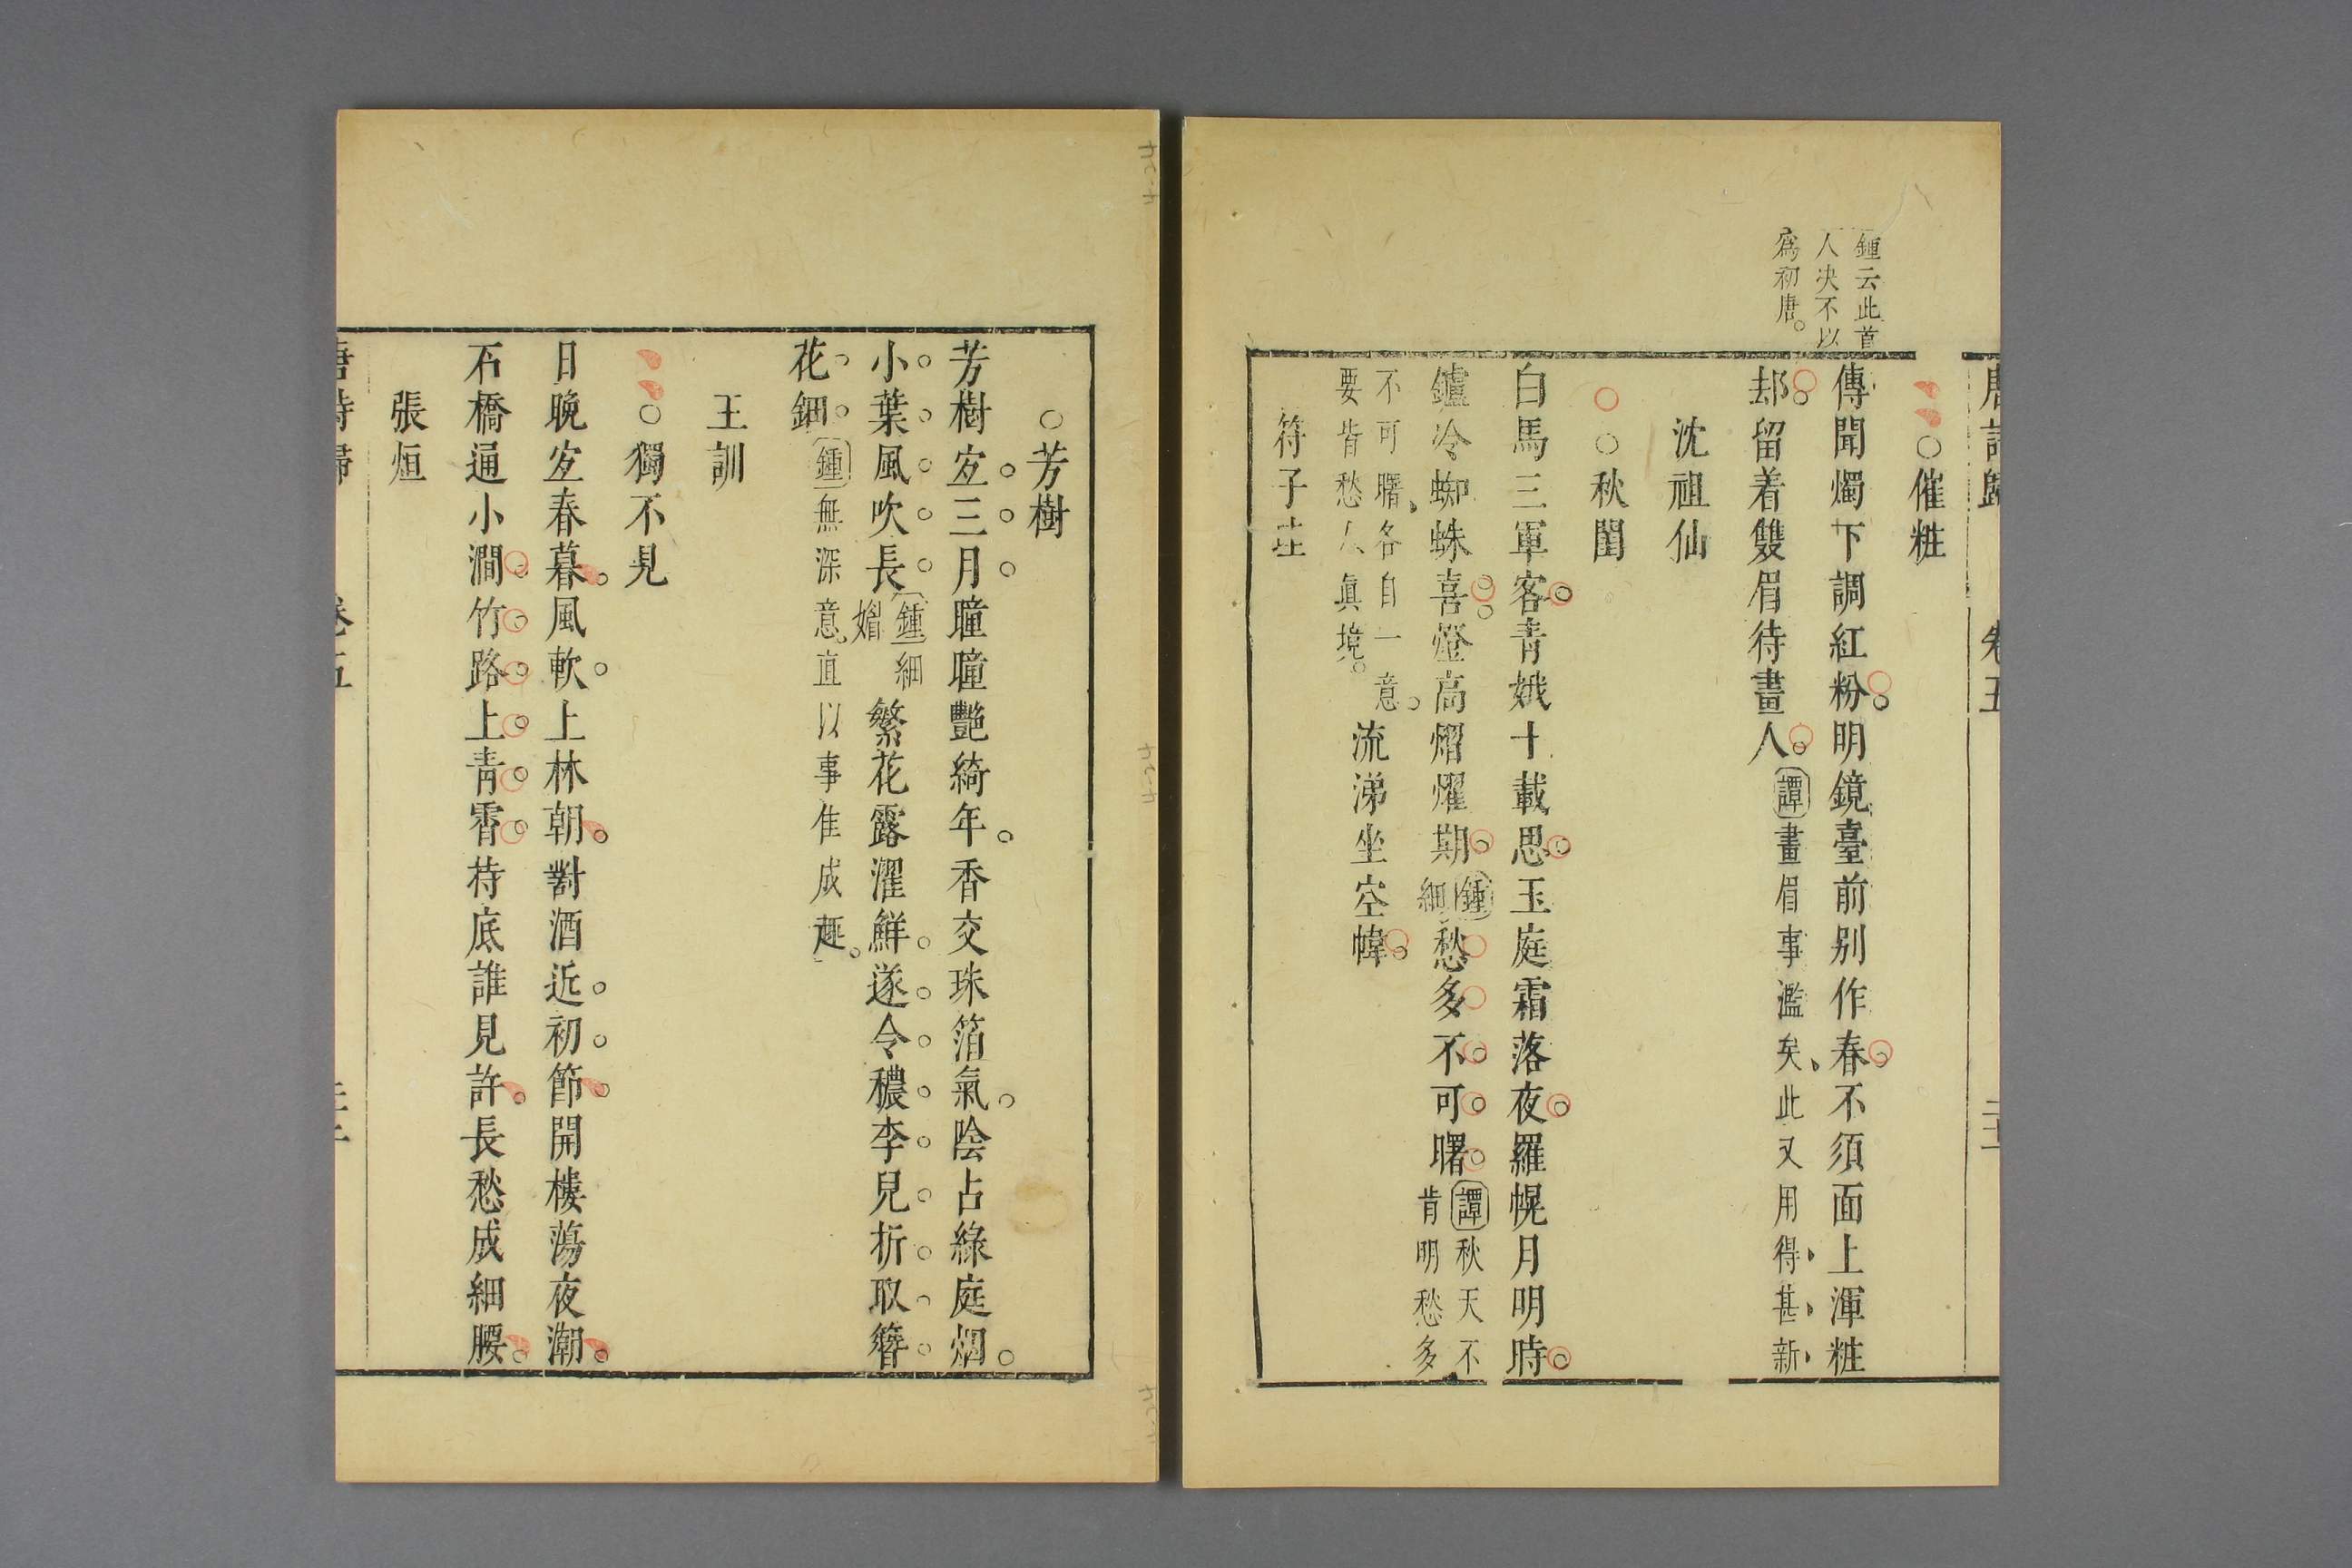 唐詩歸
卷五
鍾云此首
人決不以
為初唐
○催粧
傳聞燭下調紅粉明鏡臺前別作春不須面上渾粧
却留着雙眉待畫人譚畫眉事濫矣此又用得甚新
沈祖仙
○秋閨
白馬三軍客青娥十載思玉庭霜落夜羅幌月明時
鑪冷蜘蛛喜燈高熠燿期鍾細愁多不可曙譚秋天不肯明愁多
不可曙各自一意要皆愁人真境流涕坐空幃
符子珪
○芳樹
芳樹宐三月曈曈艷綺年香交珠箔氣陰占綠庭烟
小葉風吹長鍾細媚繁花露濯鮮遂令穠李兒折取簪
花鈿鍾無深意直以事佳成趣
王訓
○獨不見
日晚宐春暮風軟上林朝對酒近初節開樓蕩夜潮
石橋通小澗竹路上青霄待底誰見許長愁成細腰
張烜
唐詩歸
卷五